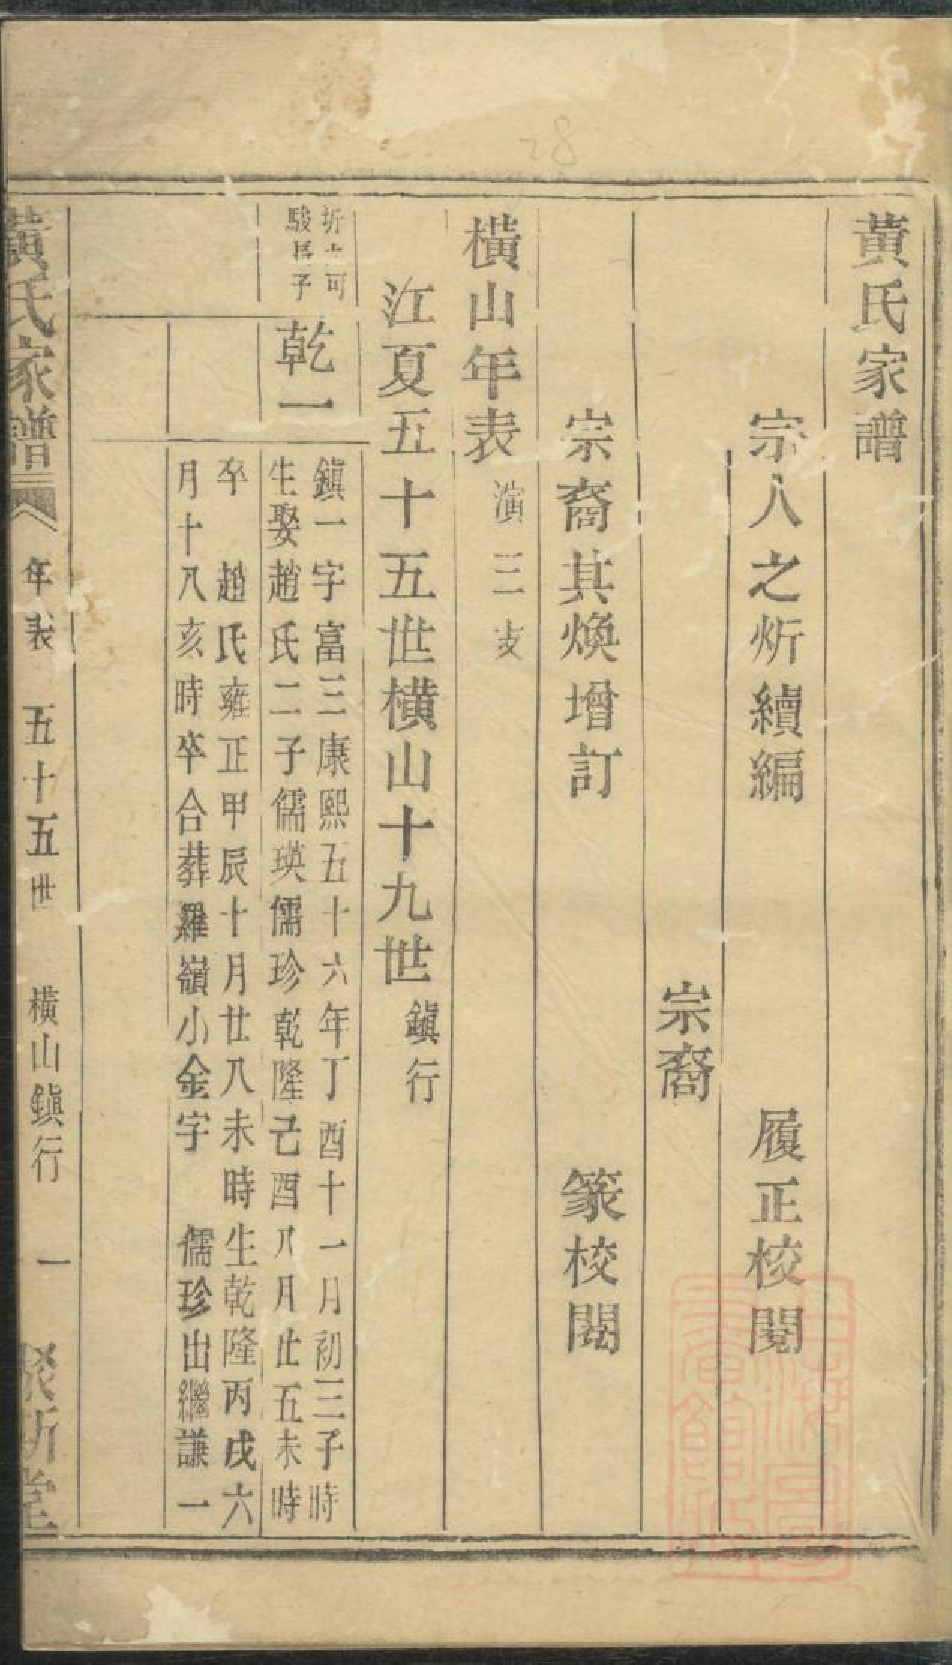 黃氏家譜
宗人之炘續編 履正校閱
宗裔
宗裔其煥增訂 篆校閱
橫山年表 演三支
江夏五十五世橫山十九世 鎮行
折士可
駿長子
乾一
鎮一字富三康熙五十六年丁酉十一月初三子時
生娶趙氏二子儒瑛儒珍乾隆己酉八月廿五未時
卒 趙氏雍正甲辰十月廿八未時生乾隆丙戌六
月十八亥時卒合葬羅嶺小金字 儒珍出繼謙一
黃氏家譜 年表 五十五世 橫山鎮行 一 堂